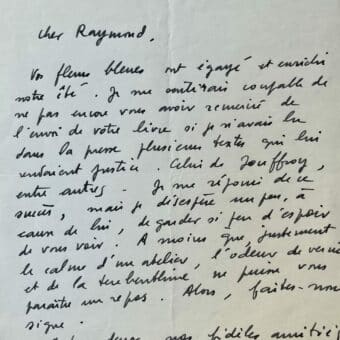 cher Raymond,
Vos fleurs bleues ont égayé et enrichi
notre été. Je me sentirais coupable de
ne pas encore vous avoir remercié de
l'envoi de votre livre si je n'avais lu
dans la presse plusieurs textes qui lui
rendaient justice. Celui de Jouffroy,
entre autres. Je me réjouis de ce
succès, mais je désespère un peu, à
cause de lui, de garder si peu d'espoir
de vous voir. A moins que justement
le calme d'un atelier, l'odeur de vernis
et de la térébenthine, ne puisse vous
paraître un repos. Alors, faites-nous
signe.
nos fidèles amitiés